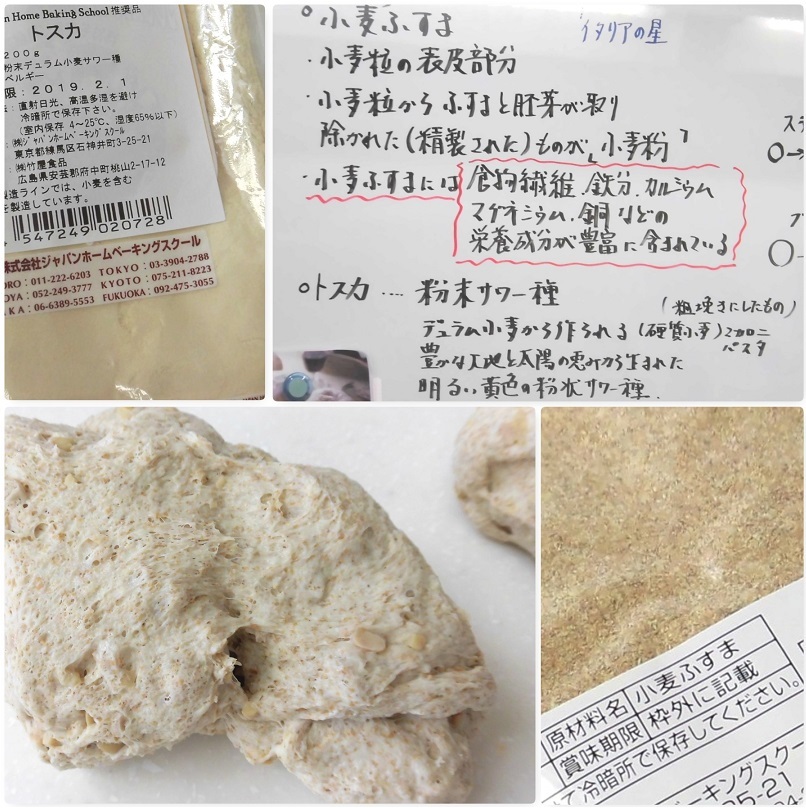 n Home Baking School 推奨品
トスカ
200g
粉末デュラム小麦サワー種
ベルギー
限:2019.2.1
直射日光、高温多湿を避け
冷暗所で保存下さい。
(室内保存 4~25℃、湿度65%以下)
:㈱ジャパンホームベーキングスクール
東京都練馬区石神井町3-25-21
:㈱竹屋食品
広島県安芸郡府中町桃山2-17-12
製造ラインでは、小麦を含む
を製造しています。
4 547249 020728
株式会社ジャパンホームベーキングスクール
ORO:011-222-6203 TOKYO:03-3904-2788
OYA:052-249-3777 KYOTO:075-211-8223
KA:06-6389-5553 FUKUOKA:092-475-3055
○小麦ふすま
イタリアの星
・小麦粒の表皮部分
・小麦粒からふすまと胚芽が取り
除かれた(精製された)ものが「小麦粉」
・小麦ふすまには食物繊維、鉄分、カルシウム
マグネシウム、銅などの
栄養成分が豊富に含まれている
○トスカ … 粉末サワー種
(粗挽きにしたもの)
デュラム小麦から作られる(硬質小麦)マカロニ
パスタ
豊かな大地と太陽の恵みから生まれた
明るい黄色の粉状サワー種.
原材料名 小麦ふすま
賞味期限 枠外に記載
て冷暗所で保存してください。
ーキングスクー
5-21